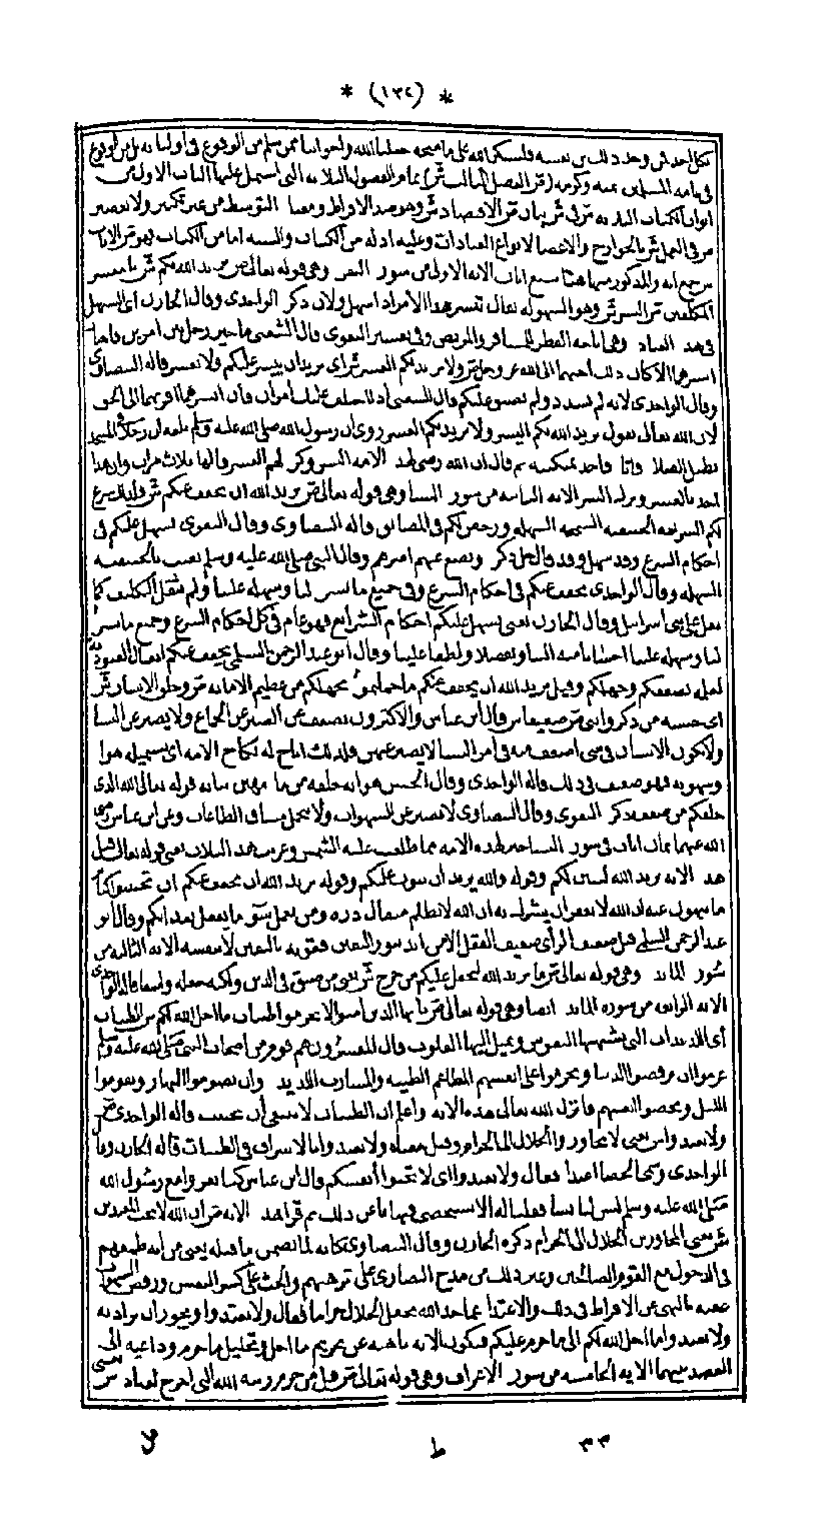 * (١٣٤) *
لكل احد ان وجد ذلك من نفسه فليشكر الله على ما منحه حفظنا الله واخواننا ممن سلم من الوقوع في اولياء
في عامة المسلمين بمنه وكرمه (قر الفصل الثالث ش) تمام الفصول الثلاثة التي اشتمل عليها الباب الاول من
ابواب الكتاب الثلاثة قر في ش بيان قر الاقتصاد ش وهو ضد الافراط ومعناه التوسط من غير تكثير ولا تقصير
قر في العمل ش بالجوارح والاعضاء لانواع العبادات وعليه ادلة من الكتاب والسنة اما من الكتاب فهو قر الآيات
ش جمع آية والمذكور منها هنا سبع آيات الآية الاولى من سورة البقرة وهي قوله تعالى قر يريد الله بكم ش يا معشر
المكلفين قر اليسر ش وهو السهولة يقال تيسر هذا الامر اذا سهل ولان ذكره الواحدي وقال الخازن اي التسهيل
في هذه العبادة وهي اباحة الفطر للمسافر والمريض وفي تفسير البغوي قال الشعبي ما خير رجل بين امرين فاختار
ايسرهما الا كان ذلك احبهما الى الله عز وجل قر ولا يريد بكم العسر ش اي يريد ان ييسر عليكم ولا يعسر قاله البيضاوي
وقال الواحدي لانه لم يشدد ولم يضيق عليكم قال الشعبي اذا اختلف عليك امران فان ايسرهما اقربهما الى الحق
لان الله تعالى يقول يريد الله بكم اليسر ولا يريد بكم العسر روي ان رسول الله صلى الله عليه وسلم بلغه ان رجلا في المسجد
يطيل الصلاة فاتاه فاخذ بمنكبيه ثم قال ان الله رضي لهذه الامة اليسر وكره لهم العسر قالها ثلاث مرات وان هذا
اخذ بالعسر وترك اليسر الآية الثانية من سورة النساء وهي قوله تعالى قر يريد الله ان يخفف عنكم ش فلذلك شرع
لكم الشريعة الحنيفية السمحة السهلة ورخص لكم في المضايق قاله البيضاوي وقال البغوي يسهل عليكم في
احكام الشرع وقد سهل وقد قال جل ذكره ويضع عنهم اصرهم وقال النبي صلى الله عليه وسلم بعثت بالحنيفية
السهلة وقال الواحدي يخفف عنكم في احكام الشرع وفي جميع ما يسر لنا وسهله علينا ولم يثقل التكليف كما
ثقل على بني اسرائيل وقال الخازن يعني يسهل عليكم احكام الشرائع فهو عام في كل احكام الشرع وجميع ما يسره
لنا وسهله علينا احسانا منه الينا وتفضلا ولطفا علينا وقال ابو عبد الرحمن السلمي يخفف عنكم اثقال العبودية
لعلمه بضعفكم وجهلكم وقيل يريد الله ان يخفف عنكم ما حملتموه بجهلكم من عظيم الامانة قر وخلق الانسان ش
اي جنسه من ذكر وانثى قر ضعيفا ش قال ابن عباس والاكثرون يضعف عن الصبر عن الجماع ولا يصبر عن النساء
ولا يكون الانسان في شيء اضعف منه في امر النساء لا يصبر عنهن فلذلك اباح له نكاح الامة اي يستميله هواه
وشهوته فهو ضعيف في ذلك قاله الواحدي وقال الحسن هو انه خلقه من ماء مهين بيانه قوله تعالى الله الذي
خلقكم من ضعف ذكره البغوي وقال البيضاوي لا يصبر عن الشهوات ولا يتحمل مشاق الطاعات وعن ابن عباس رضي
الله عنهما ثمان آيات في سورة النساء خير لهذه الامة مما طلعت عليه الشمس وغربت هذه الثلاث يعني قوله تعالى قبل
هذه الآية يريد الله ليبين لكم وقوله والله يريد ان يتوب عليكم وقوله يريد الله ان يخفف عنكم ان تجتنبوا كبائر
ما تنهون عنه ان الله لا يغفر ان يشرك به ان الله لا يظلم مثقال ذرة ومن يعمل سوءا ما يفعل الله بعذابكم وقال ابو
عبد الرحمن السلمي قيل ضعيف الرأي ضعيف العقل الا من ايد بنور اليقين فقوته باليقين لا بنفسه الآية الثالثة من
سورة المائدة وهي قوله تعالى قر ما يريد الله ليجعل عليكم من حرج ش يعني من ضيق في الدين ولكنه جعله واسعا قاله الواحدي
الآية الرابعة من سورة المائدة ايضا وهي قوله تعالى قر يا ايها الذين آمنوا لا تحرموا طيبات ما احل الله لكم ش الطيبات
اي اللذيذات التي تشتهيها النفوس ويميل اليها القلوب قال المفسرون هم قوم من اصحاب النبي صلى الله عليه وسلم
عزموا ان يرفضوا الدنيا ويحرموا على انفسهم المطاعم الطيبة والمشارب اللذيذة وان يصوموا النهار ويقوموا
الليل ويخصوا انفسهم فانزل الله تعالى هذه الآية واعلم ان الطيبات لا ينبغي ان تجتنب قاله الواحدي قر
ولا تعتدوا ش يعني لا تجاوزوا الحلال الى الحرام وقيل معناه ولا تعتدوا بالاسراف في الطيبات قاله الخازن وقال
الواحدي وسمى الخصاء اعتداء فقال ولا تعتدوا اي لا تجبوا انفسكم قال ابن عباس كنا نغزو مع رسول الله
صلى الله عليه وسلم ليس لنا نساء فقلنا له الا نستخصي فنهانا عن ذلك ثم قرأ هذه الآية قر ان الله لا يحب المعتدين
ش يعني المجاوزين الحلال الى الحرام ذكره الخازن وقال البيضاوي كانه لما تضمن ما قبله يعني من آية طمعهم
في الدخول مع القوم الصالحين وغير ذلك من مدح النصارى على ترهبهم والحث على كسر النفس ورفض الشهوات
عقبه بالنهي عن الافراط في ذلك والاعتداء عما حد الله بجعل الحلال حراما فقال ولا تعتدوا ويجوز ان يراد به
ولا تعتدوا ما احل الله لكم الى ما حرم عليكم فتكون الآية ناهية عن تحريم ما احل وتحليل ما حرم وداعية الى
القصد بينهما الآية الخامسة من سورة الاعراف وهي قوله تعالى قر قل من حرم زينة الله التي اخرج لعباده ش يعني
٣٣
ط